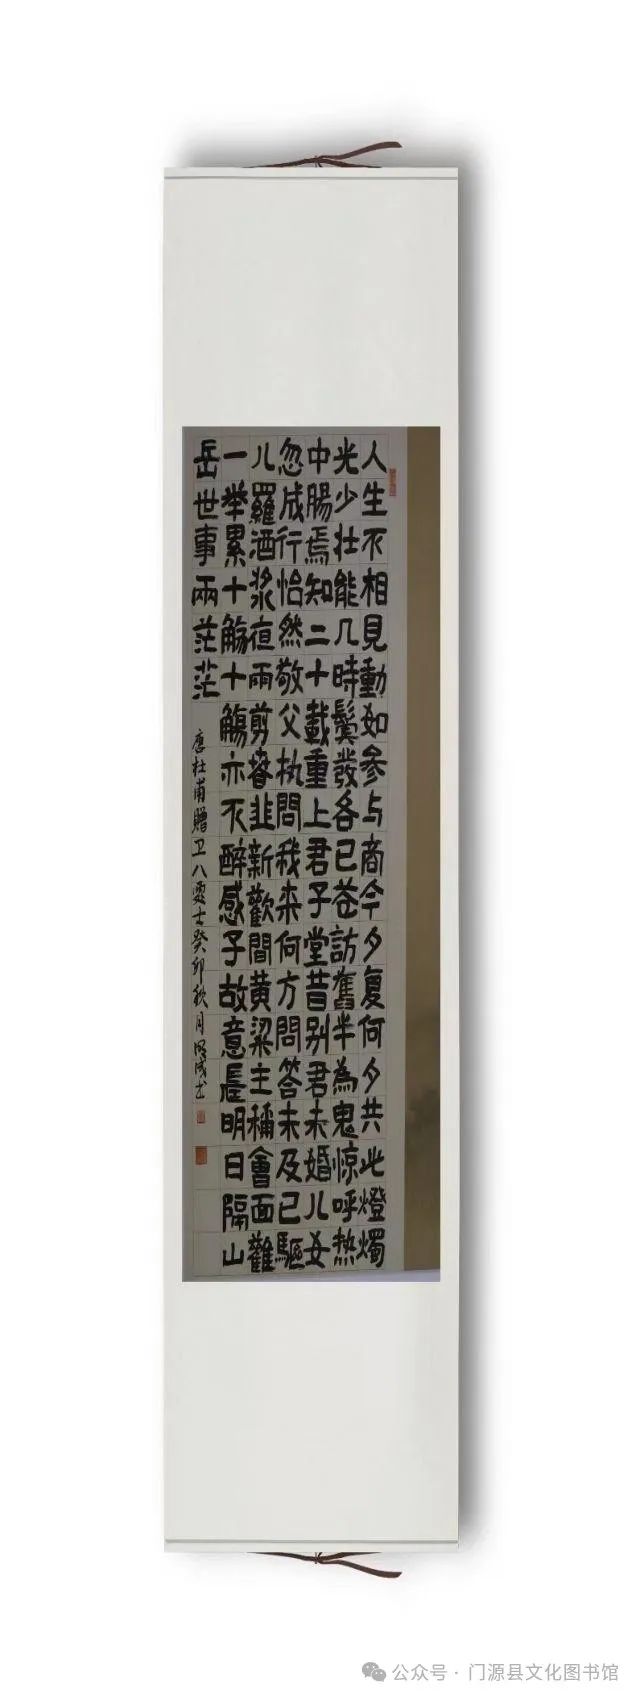 人生不相見動如参与商今夕复何夕共此燈燭
光少壮能几時鬓發各已苍訪舊半為鬼惊呼热
中腸焉知二十載重上君子堂昔别君未婚儿女
忽成行怡然敬父执問我来何方問答未及已驅
儿羅酒浆夜雨剪春韭新歡間黄粱主稱會面難
一举累十觴十觴亦不醉感子故意長明日隔山
岳世事兩茫茫
唐杜甫贈卫八處士癸卯秋月成书
公众号·门源县文化图书馆